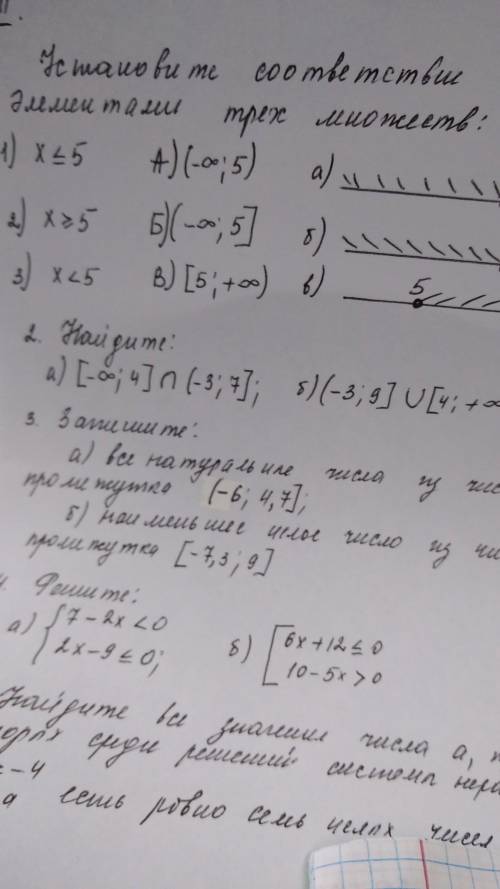 Установите соответствие
элементами трех множеств:
1) x ≤ 5 А) (-∞; 5) а)
2) x ≥ 5 Б) (-∞; 5] б)
3) x < 5 В) [5; +∞) в) 5
2. Найдите:
а) [-∞; 4] ∩ (-3; 7]; б) (-3; 9] ∪ [4; +∞
3. Запишите:
а) все натуральные числа из чис
промежутка (-6; 4,7];
б) наименьшее целое число из чи
промежутка [-7,3; 9]
4. Решите:
а) { 7 - 2x < 0 б) [ 6x + 12 ≤ 0
2x - 9 ≤ 0; 10 - 5x > 0
Найдите все значения числа a, п
среди решений системы нера
- 4
a есть ровно семь целых чисел